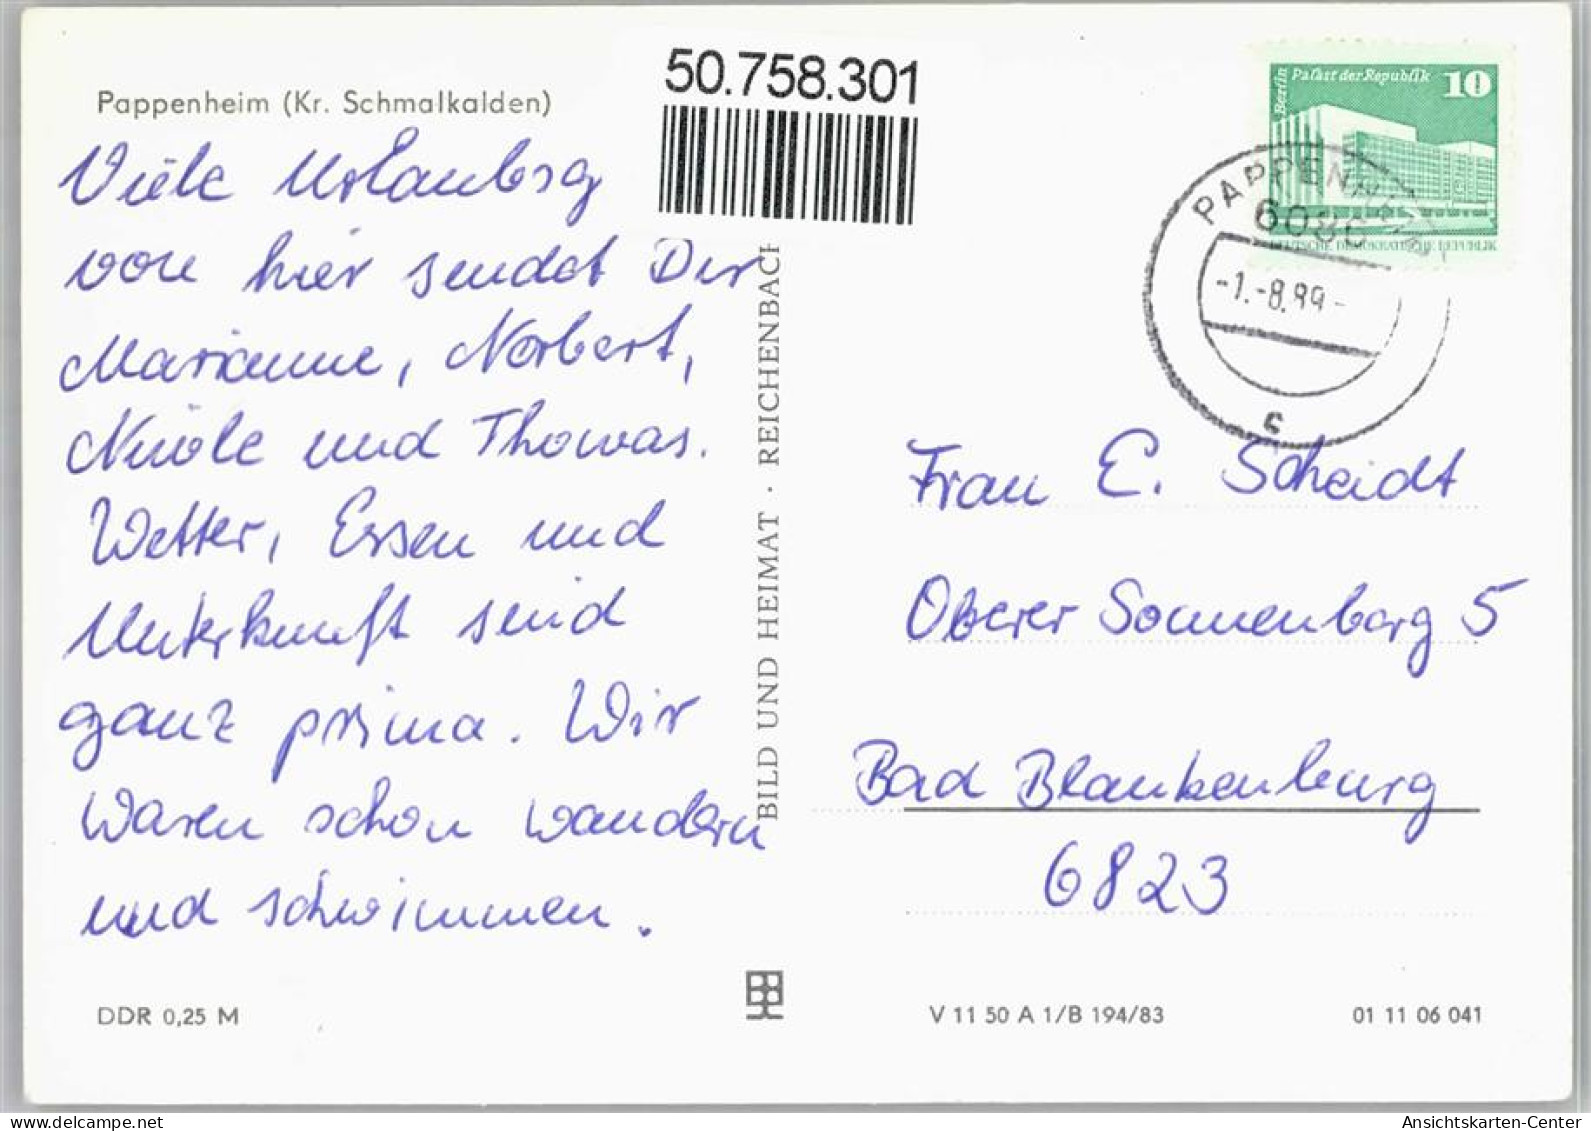 Pappenheim (Kr. Schmalkalden)
Viele Urlaubsg
von hier sendet Dir
Marianne, Norbert,
Nicole und Thomas.
Wetter, Essen und
Unterkunft sind
ganz prima. Wir
waren schon wandern
und schwimmen.
DDR 0,25 M
50.758.301
BILD UND HEIMAT · REICHENBACH
Berlin
Palast der Republik
10
DEUTSCHE DEMOKRATISCHE REPUBLIK
PAPPENHEIM
6086
-1.-8.89-
c
Frau E. Scheidt
Oberer Sonnenberg 5
Bad Blankenburg
6823
V 11 50 A 1/B 194/83
01 11 06 041
Ansichtskarten-Center